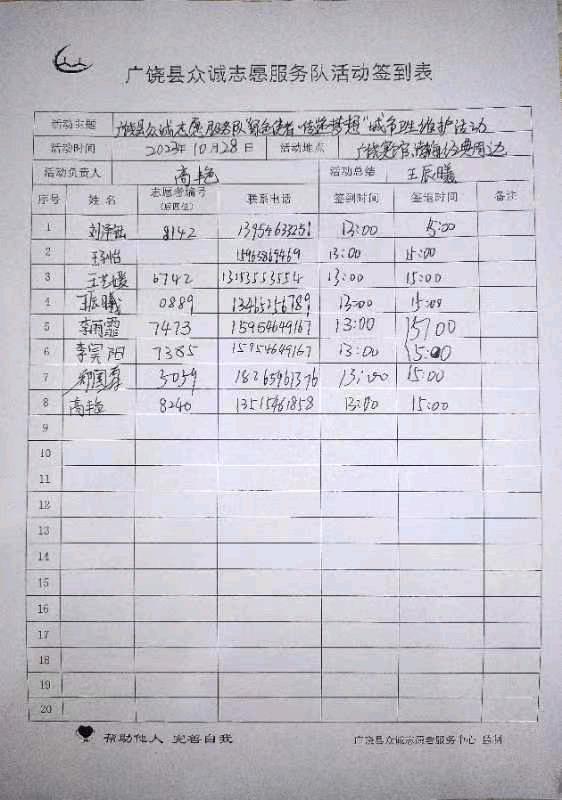 广饶县众诚志愿服务队活动签到表
活动主题 广饶县众诚志愿服务队"绿色使者·传递梦想"城市维护活动
活动时间 2023年10月28日 活动地点 广饶 周边
活动负责人 高艳 活动总结 王辰曦
序号 姓名 志愿者编号(后四位) 联系电话 签到时间 签退时间 备注
1 8142 13954633251 13:00 15:00
2 15965869469 13:00 15:00
3 王艺媛 6742 13153553554 13:00 15:00
4 王辰曦 0889 13465256789 13:00 15:00
5 李雨霏 7473 15954649167 13:00 15:00
6 李冥阳 7385 15954649167 13:00 15:00
7 3039 18265961376 13:00 15:00
8 高艳 8240 13515461858 13:00 15:00
9
10
11
12
13
14
15
16
17
18
19
20
帮助他人 完善自我 广饶县众诚志愿者服务中心 监制